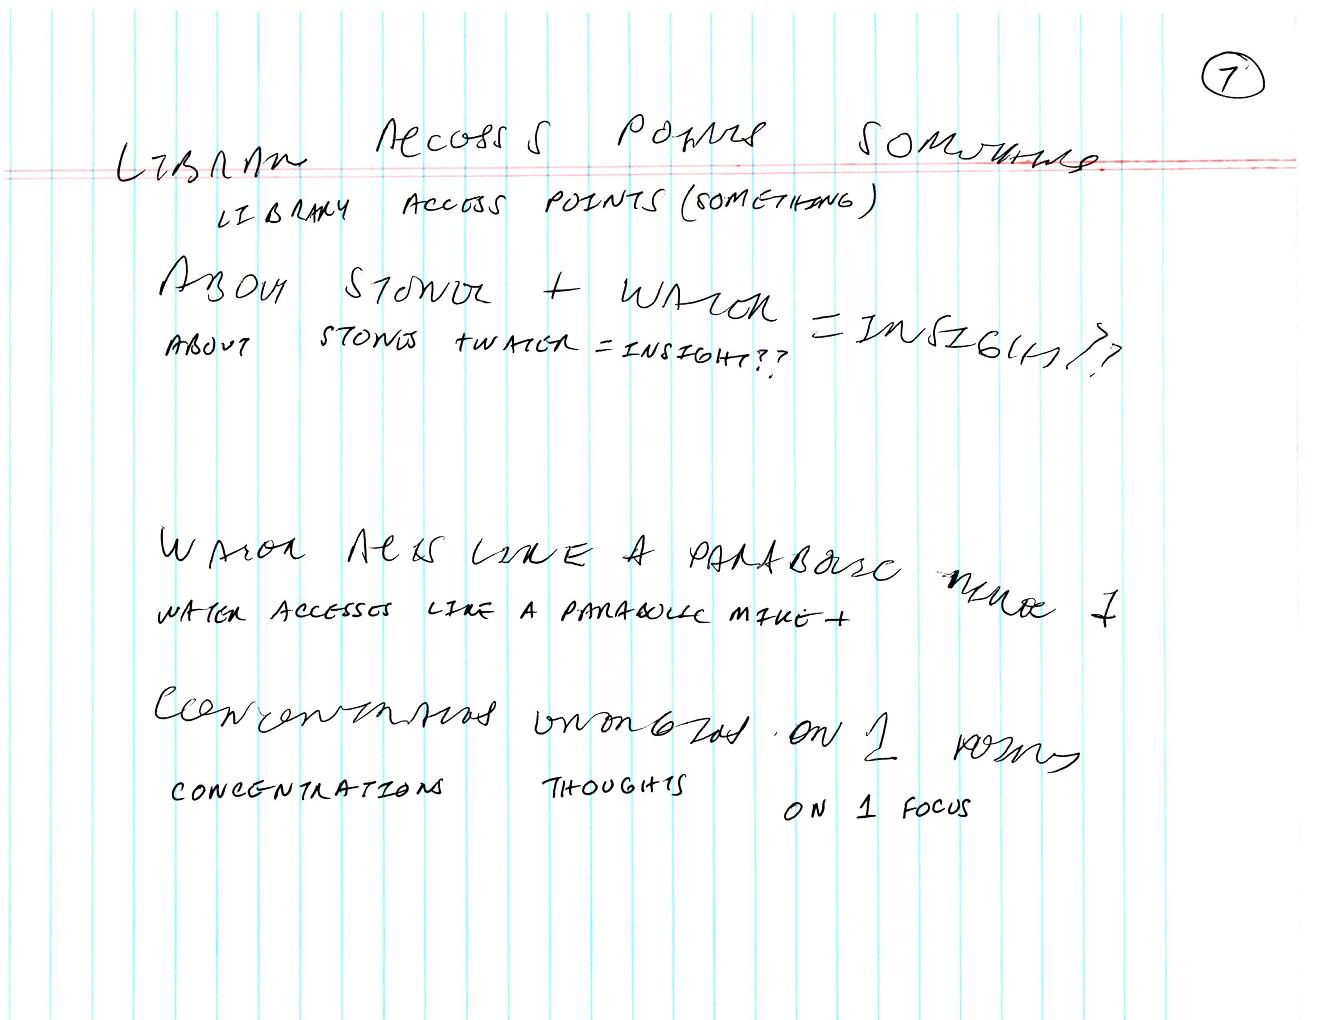 7
LIBRARY ACCESS POINTS SOMETHING
LIBRARY ACCESS POINTS (SOMETHING)
ABOUT STONE + WATER = INSIGHT??
ABOUT STONES + WATER = INSIGHT??
WATER ACTS LIKE A PARABOLIC MIKE +
WATER ACCESSES LIKE A PARABOLIC MIKE +
CONCENTRATIONS ON 1
CONCENTRATIONS THOUGHTS ON 1 FOCUS